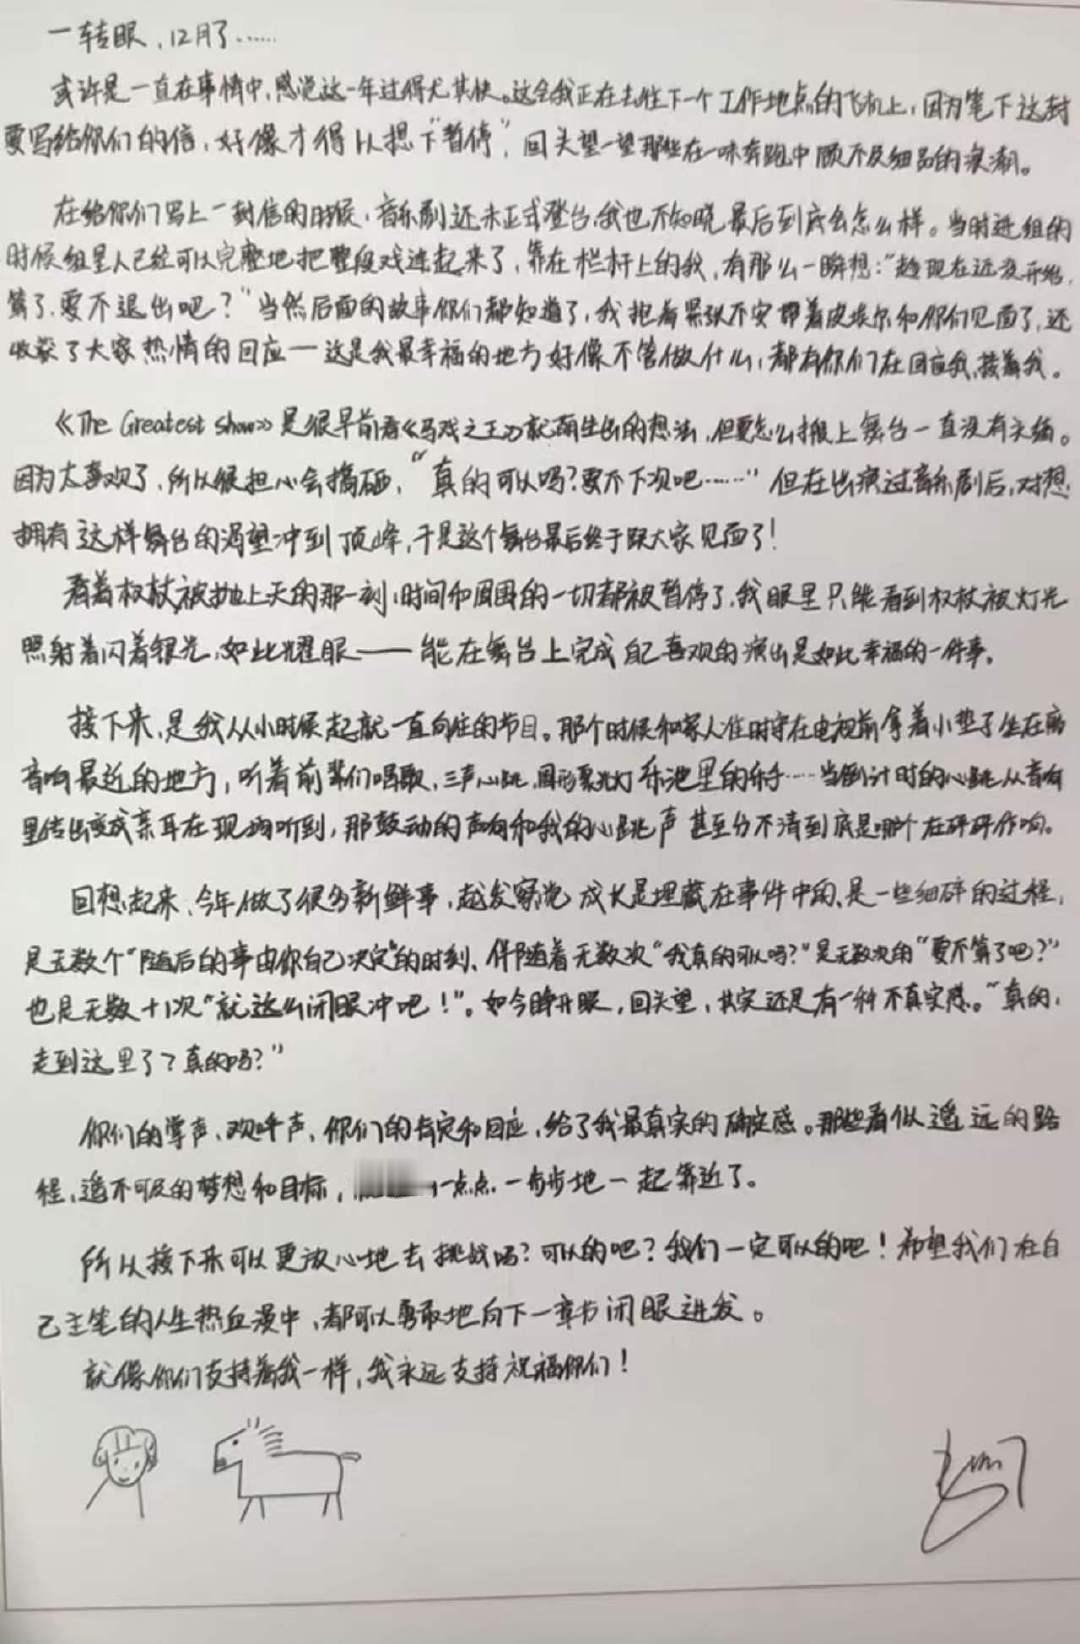 一转眼，12月了……
或许是一直在事情中，感觉这一年过得尤其快。这会我正在去往下一个工作地点的飞机上，因为笔下这封
要写给你们的信，好像才得以想下"暂停"，回头望一望那些在一味奔跑中顾不及细品的浪潮。
在给你们写上一封信的时候，音乐剧还未正式登台，我也不知晓最后到底会怎么样。当时进组的
时候组里人已经可以完整地把整段戏连起来了，靠在栏杆上的我，有那么一瞬想："趁现在还没开始，
算了，要不退出吧？"当然后面的故事你们都知道了，我抱着紧张不安带着皮埃尔和你们见面了，还
收获了大家热情的回应——这是我最幸福的地方好像不管做什么，都有你们在回应我，接着我。
《The Greatest Show》是很早前看《马戏之王》就萌生出的想法，但要怎么搬上舞台一直没有头绪。
因为太喜欢了，所以很担心会搞砸，"真的可以吗？要不下次吧……"但在出演过音乐剧后，对想
拥有这样舞台的渴望冲到顶峰，于是这个舞台最后终于跟大家见面了！
看着权杖被抛上天的那一刻，时间和周围的一切都被暂停了，我眼里只能看到权杖被灯光
照射着闪着银光，如此耀眼——能在舞台上完成自己喜欢的演出是如此幸福的一件事。
接下来，是我从小时候起就一直向往的节目。那个时候和家人准时守在电视前拿着小垫子坐在离
音响最近的地方，听着前辈们唱歌，三声心跳，圆形聚光灯，乐池里的乐手……当倒计时的心跳从音响
里传出变成亲耳在现场听到，那鼓动的声响和我的心跳声甚至分不清到底是哪个在砰砰作响。
回想起来，今年做了很多新鲜事，越发察觉成长是埋藏在事件中的，是一些细碎的过程，
是无数个"随后的事由你自己决定"的时刻、伴随着无数次"我真的可以吗？"是无数次的"要不算了吧？"
也是无数+1次"就这么闭眼冲吧！"。如今睁开眼，回头望，其实还是有一种不真实感。"真的，
走到这里了？真的吗？"
你们的掌声、欢呼声、你们的肯定和回应，给了我最真实的确定感。那些看似遥远的路
程，遥不可及的梦想和目标，一点点，一步步地一起靠近了。
所以接下来可以更放心地去挑战吗？可以的吧？我们一定可以的吧！希望我们在自
己主笔的人生热血漫中，都可以勇敢地向下一章节闭眼进发。
就像你们支持着我一样，我永远支持祝福你们！